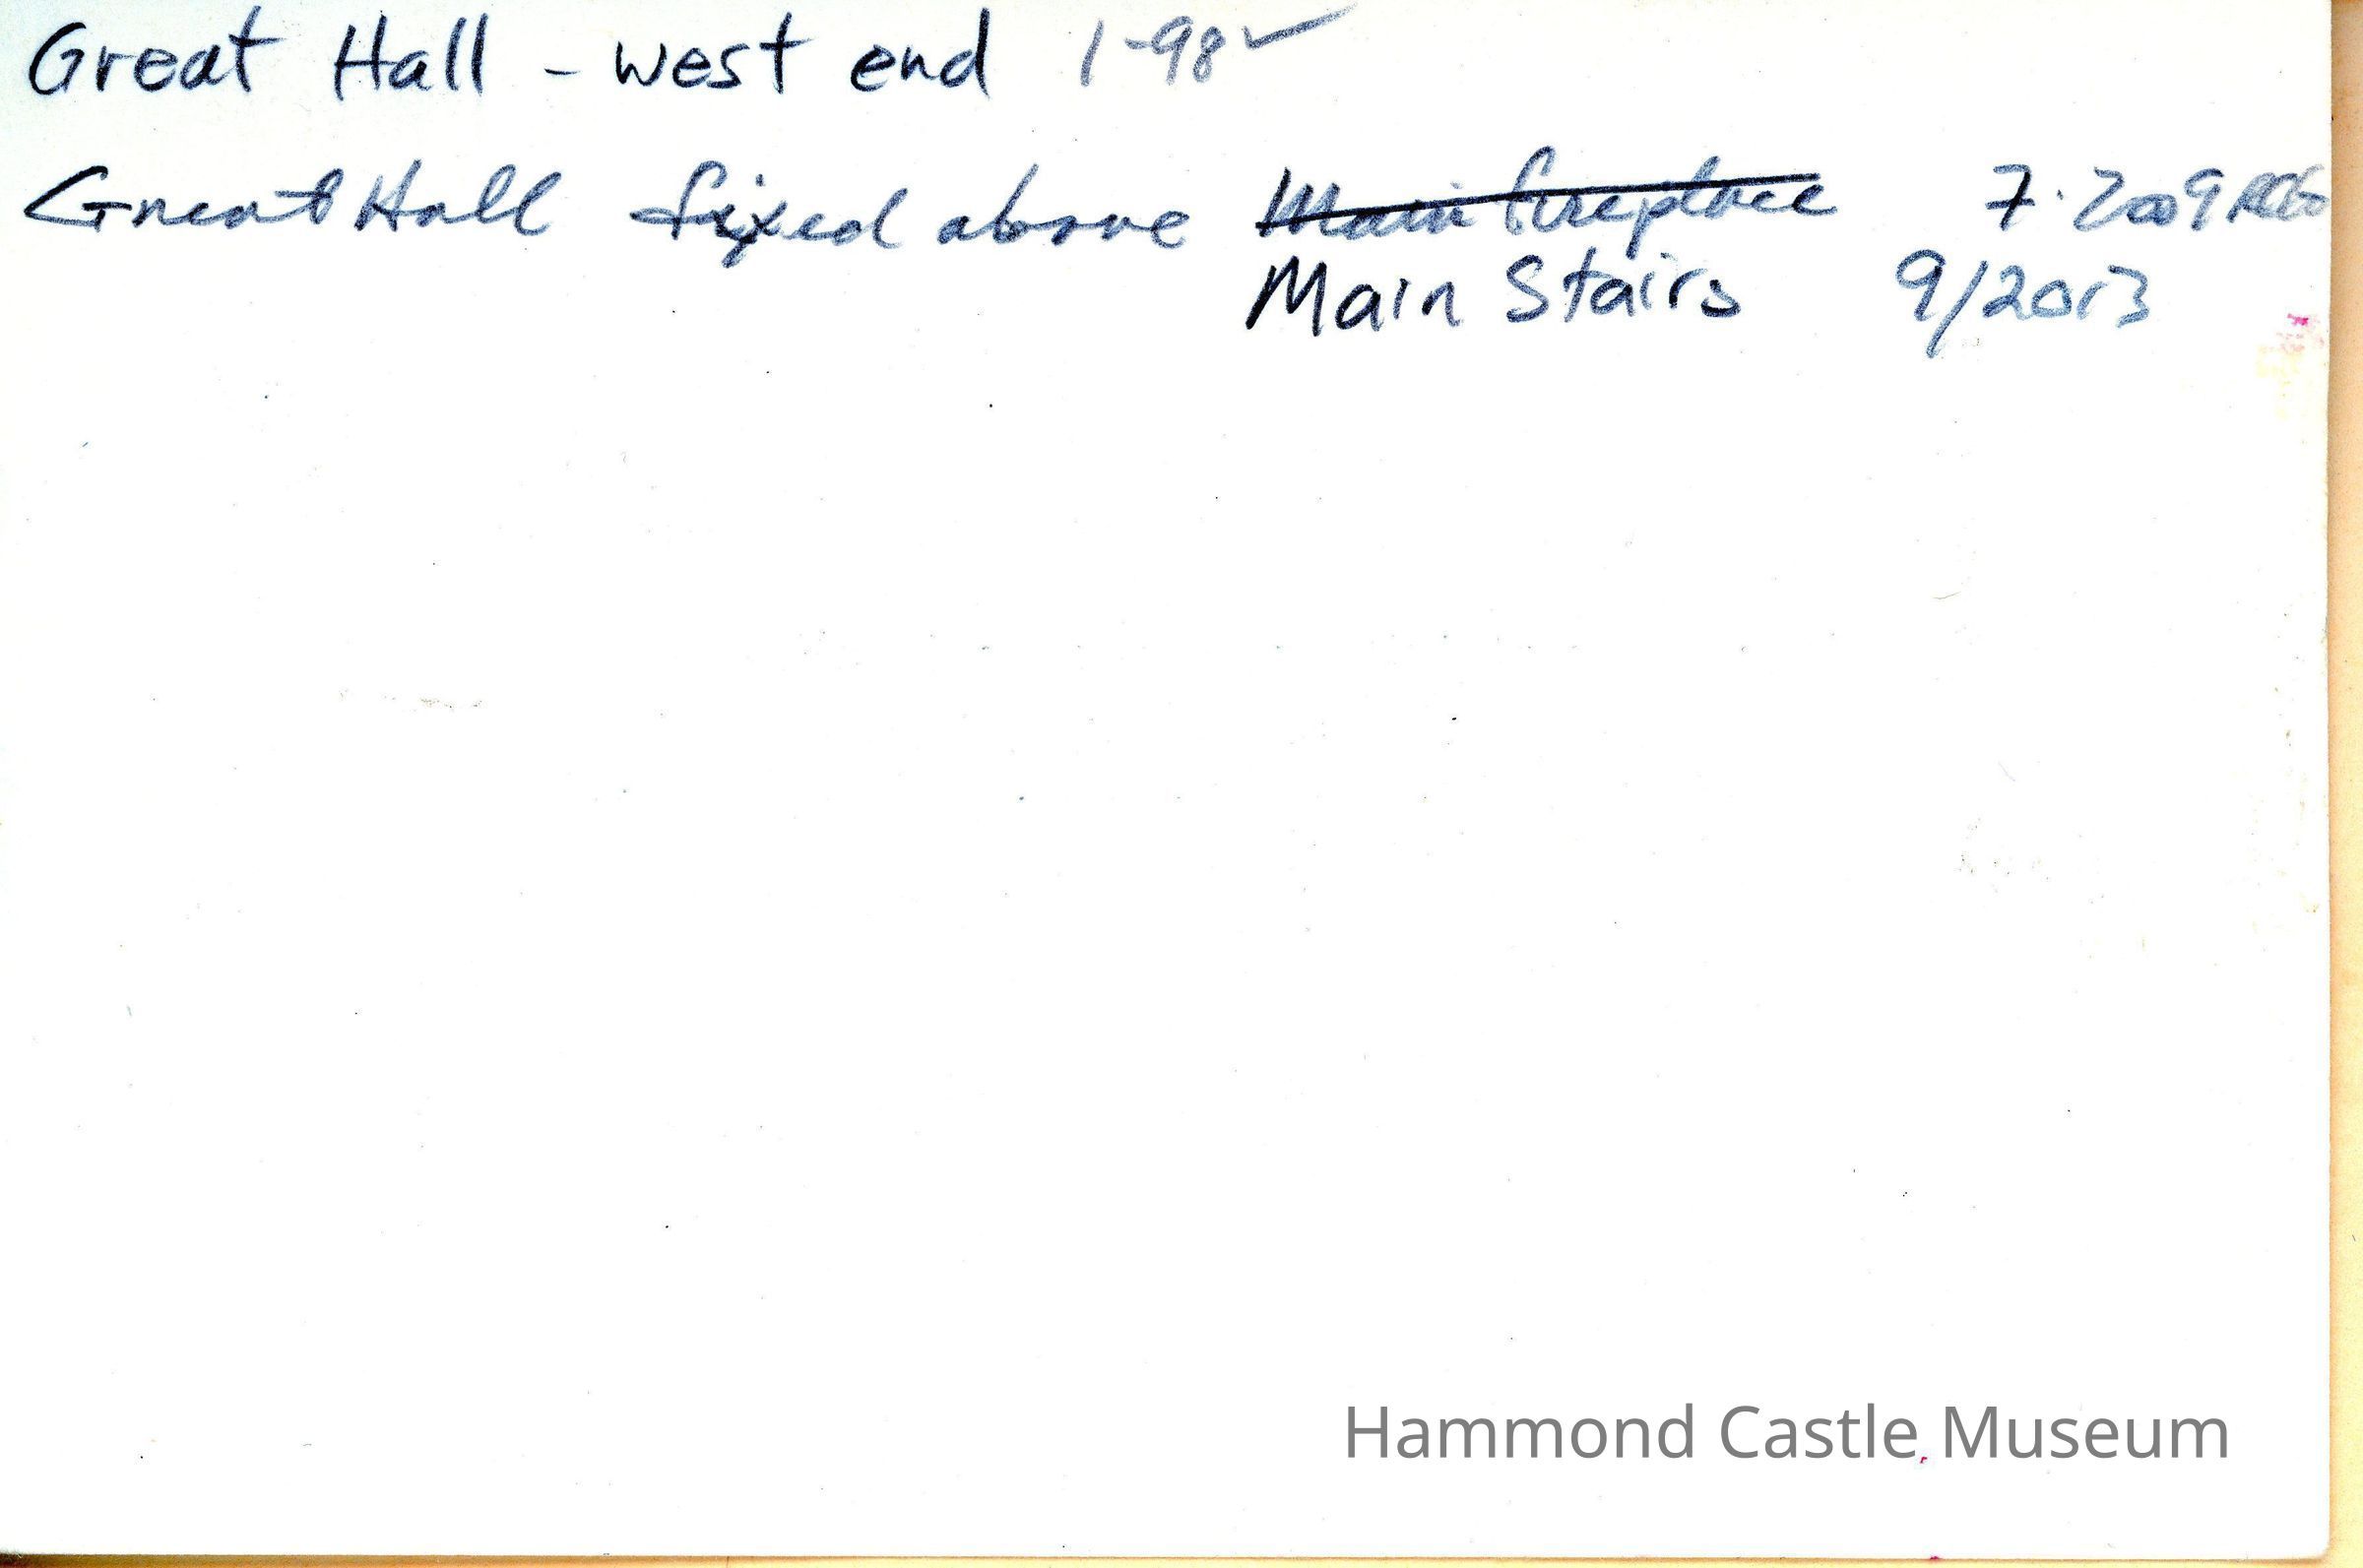 Great Hall - west end 1-98 ✓
Great Hall fixed above Main fireplace 7.2009
Main Stairs 9/2013
Hammond Castle Museum